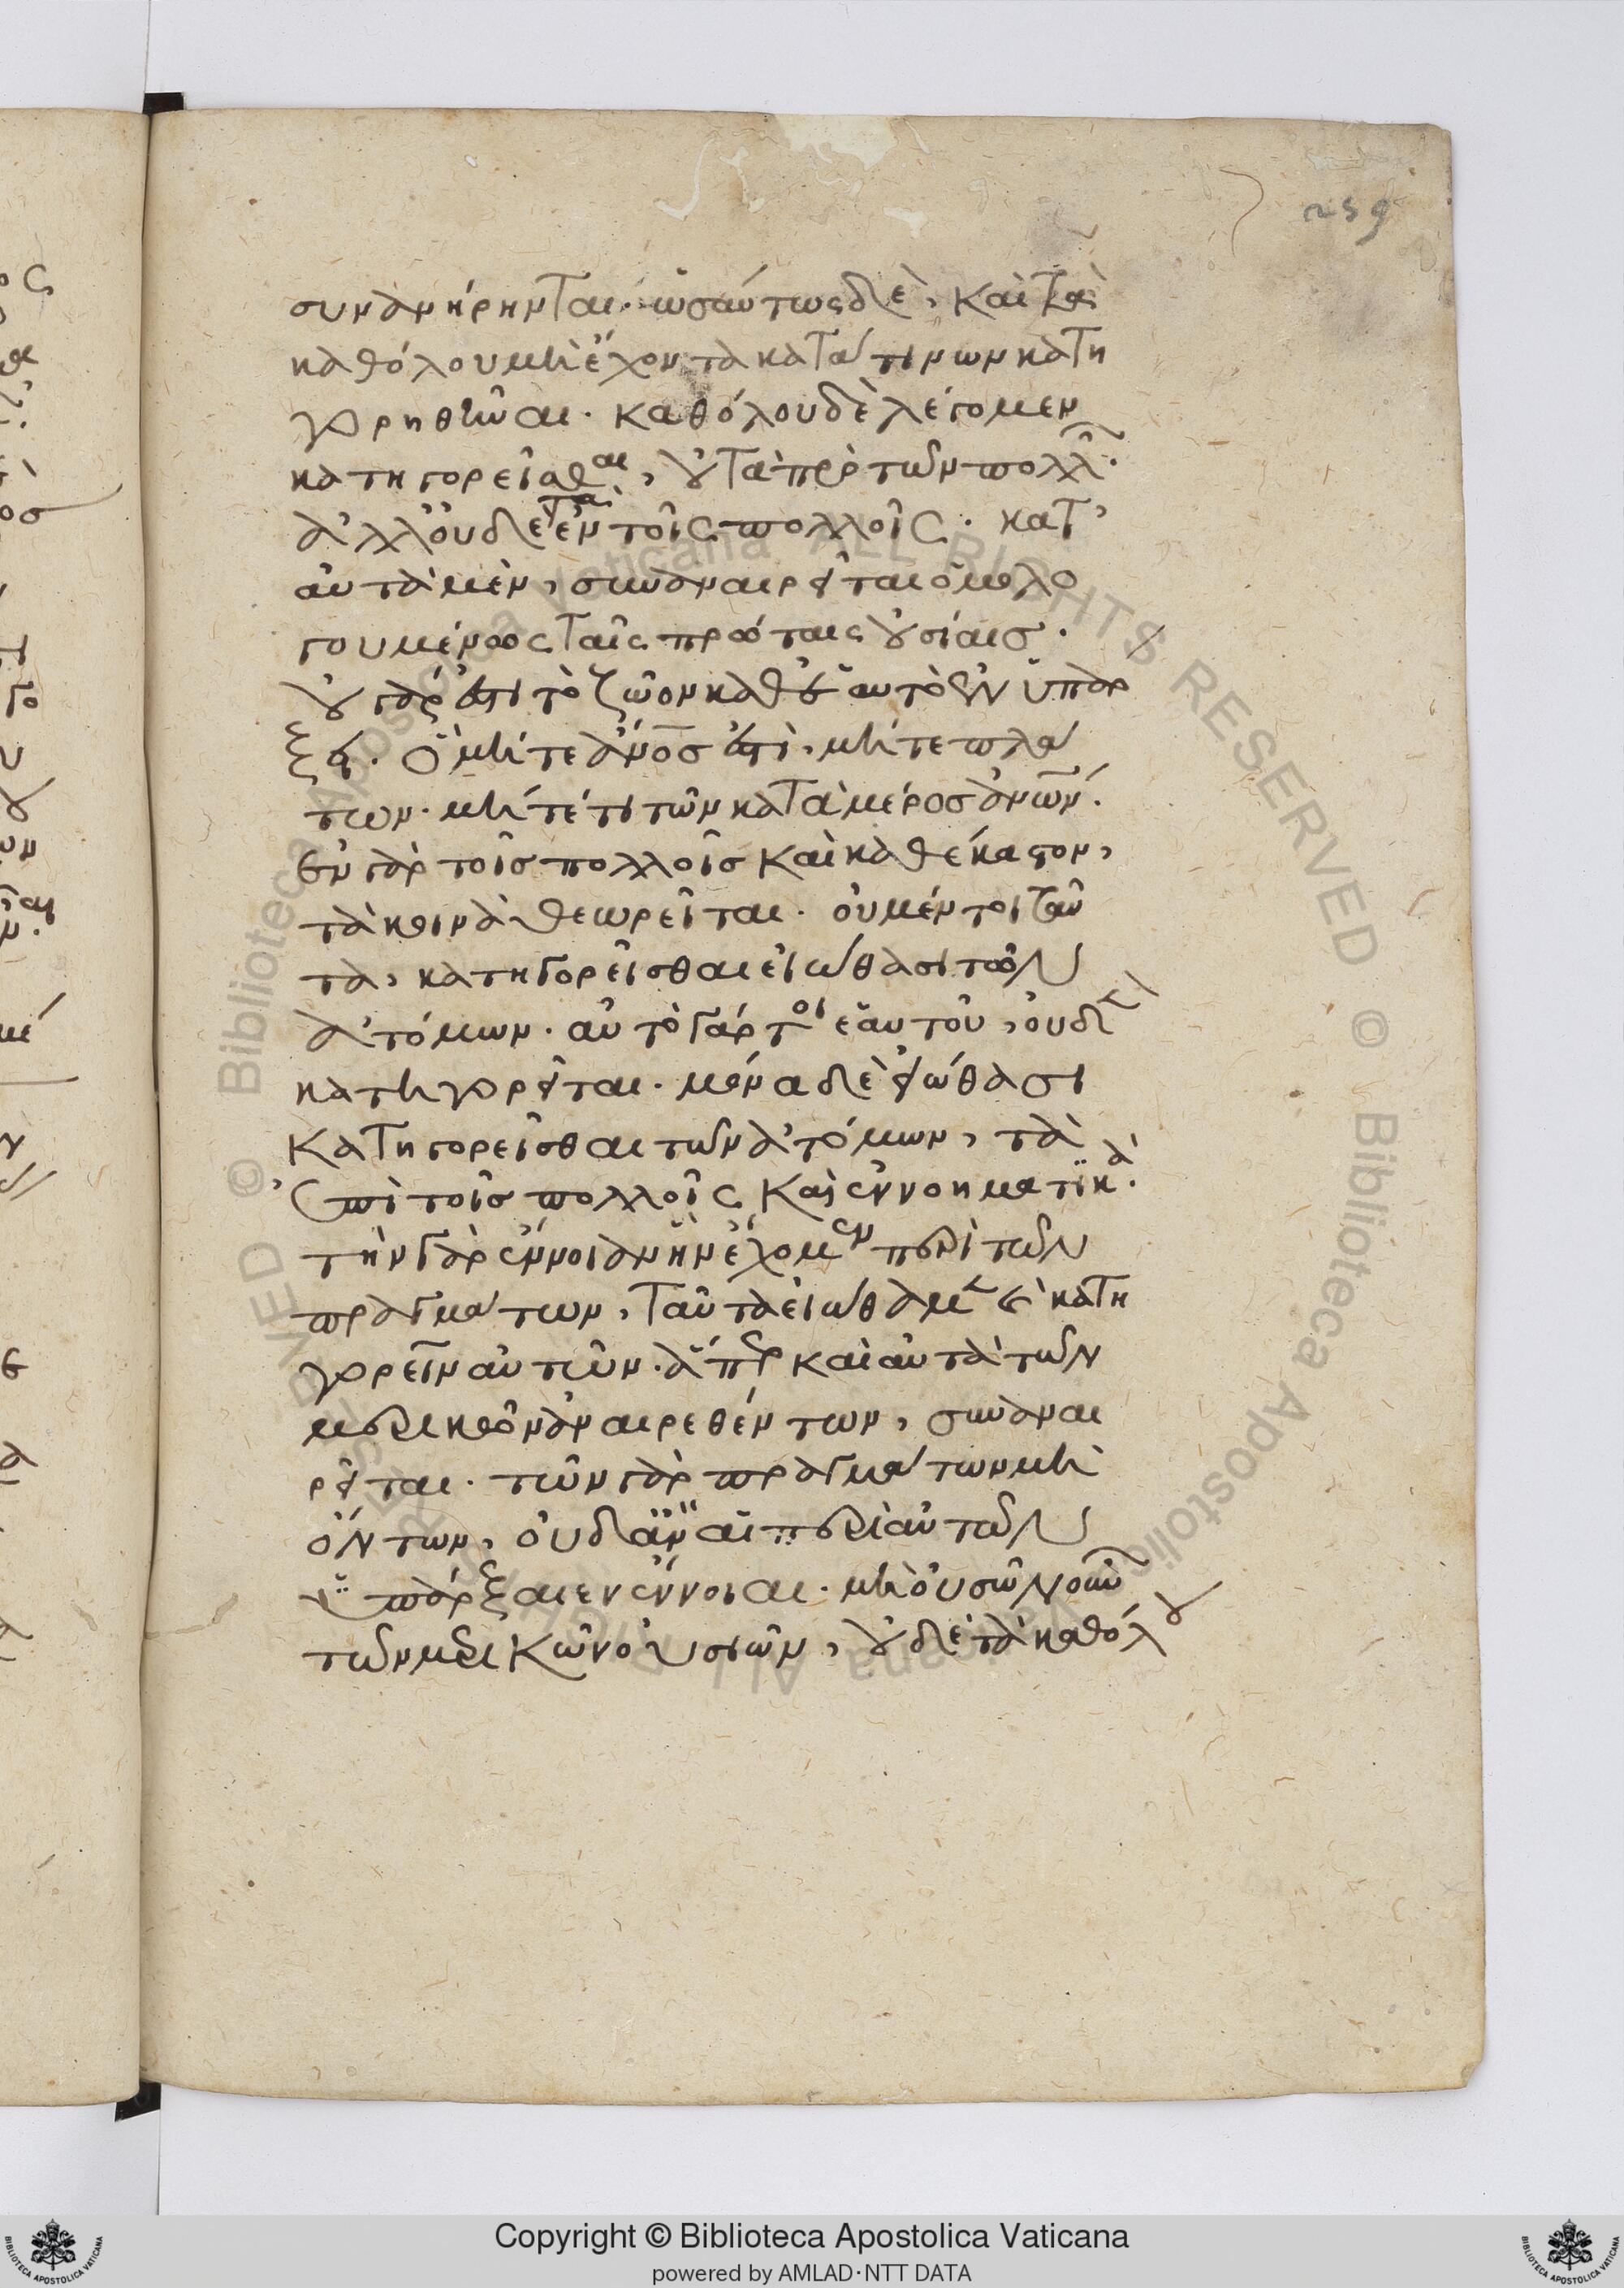 259
συνανήρηνται· ὡσαύτως δὲ, καὶ τὰ
καθόλου μὴ ἔχοντα κατά τινων κατη
γορηθῆναι· καθόλου δὲ λέγομεν
κατηγορεῖσθαι, οὐ τὰ πρὸ τῶν πολλῶν·
ἀλλ' οὐδὲ τὰ ἐν τοῖς πολλοῖς· κατ'
αὐτὰ μὲν, συναναιρεῖται ὁμολο
γουμένως ταῖς πρώταις οὐσίαις·
οὐ γάρ ἐστι τὸ ζῶον καθ' ἑαυτὸ ἐν ὑπάρ
ξει· ὃ μήτε ἄνος ἐστὶ, μήτε πλά
των· μήτέ τι τῶν κατὰ μέρος ἀνων·
ἐν γὰρ τοῖς πολλοῖς καὶ καθέκαστον,
τὰ κοινὰ θεωρεῖται· οὐ μέντοι ταῦ
τα, κατηγορεῖσθαι εἰώθασι τῶν
ἀτόμων· αὐτὸ γάρ τοι ἑαυτοῦ, οὐδὲν
κατηγορεῖται· μόνα δὲ εἰώθασι
κατηγορεῖσθαι τῶν ἀτόμων, τὰ
ἐπὶ τοῖς πολλοῖς καὶ ἐννοηματικὰ·
τὴν γὰρ ἔννοιαν ἣν ἔχομεν περὶ τῶν
πραγμάτων, ταῦτα εἰώθαμεν κατη
γορεῖν αὐτῶν· ἅπερ καὶ αὐτὰ τῶν
μερικῶν ἀναιρεθέντων, συναναι
ρεῖται· τῶν γὰρ πραγμάτων μὴ
ὄντων, οὐδ' ἂν αἱ περὶ αὐτῶν
ὑπάρξαιεν ἔννοιαι· μὴ οὐσῶν οὖν
τῶν μερικῶν οὐσιῶν, οὐδὲ τὰ καθόλου
Copyright © Biblioteca Apostolica Vaticana
powered by AMLAD·NTT DATA